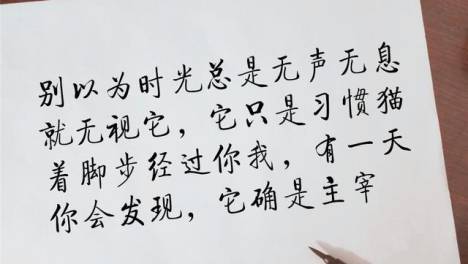 别以为时光总是无声无息
就无视它，它只是习惯猫
着脚步经过你我，有一天
你会发现，它确是主宰